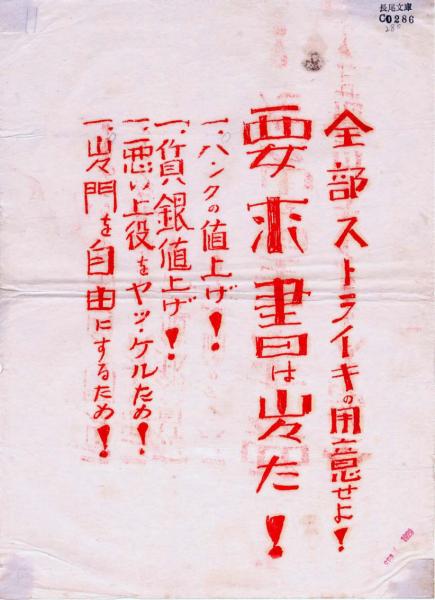 長尾文庫
C0286
286
全部ストライキの用意せよ!
要求書は出た!
一、ハンクの値上げ!
一、賃銀値上げ!
一、悪い上役をヤッツケルため!
一、出門を自由にするため!